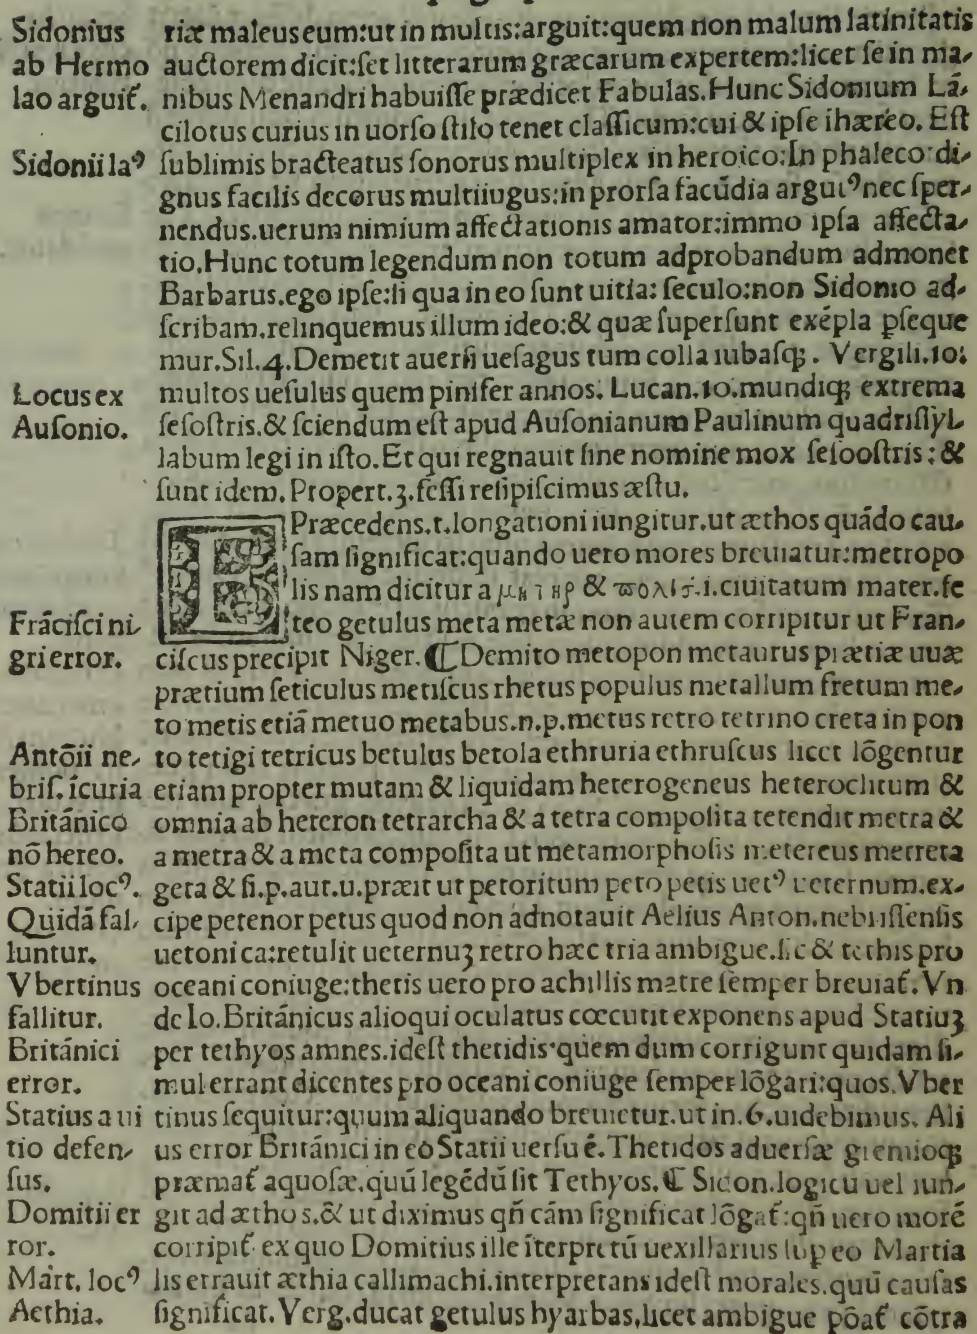 Sidonius
ab Hermo
lao arguit̃.
Sidonii laꝰ
Locus ex
Ausonio.
Frãcisci ni-
gri error.
Antõii ne-
bris. ĩcuria
Británico
nõ hereo.
Statii locꝰ.
Quidã fal-
luntur.
Vbertinus
fallitur.
Británici
error.
Statius a ui
tio defen-
sus.
Domitii er
ror.
Mart. locꝰ
Aethia.
riæ maleus eum:ut in multis:arguit:quem non malum latinitatis
auctorem dicit:set litterarum græcarum expertem:licet se in ma-
nibus Menandri habuisse prædicet Fabulas.Hunc Sidonium Lã-
cilotus curius in uorso stilo tenet classicum:cui & ipse ihæreo. Est
sublimis bracteatus sonorus multiplex in heroico:In phaleco di-
gnus facilis decorus multiiugus:in prorsa facũdia arguiꝰ nec sper-
nendus.uerum nimium affectationis amator:immo ipsa affecta-
tio.Hunc totum legendum non totum adprobandum admonet
Barbarus.ego ipse:si qua in eo sunt uitia: seculo:non Sidonio ad-
scribam.relinquemus illum ideo:& quæ supersunt exẽpla p̱seque
mur.Sil.4.Demetit auersi uesagus tum colla iubasqꝫ. Vergili.10:
multos uesulus quem pinifer annos. Lucan.10.mundiqꝫ extrema
sesostris.& sciendum est apud Ausonianum Paulinum quadrisyl-
labum legi in isto.Et qui regnauit sine nomine mox seloostris: &
sunt idem. Propert.3.fessi resipiscimus æstu.
E Præcedens.t.longationi iungitur.ut æthos quãdo cau-
sam significat:quando uero mores breuiatur:metropo
lis nam dicitur a μητηρ & πολις.i.ciuitatum mater.fe
teo getulus meta metæ non autem corripitur ut Fran-
ciscus precipit Niger. ⸿Demito metopon metaurus prætiæ uuæ
prætium seticulus metiscus rhetus populus metallum fretum me-
to metis etiã metuo metabus.n.p.metus retro tetrino creta in pon
to tetigi tetricus betulus betola ethruria ethruscus licet lõgentur
etiam propter mutam & liquidam heterogeneus heteroclitum &
omnia ab heteron tetrarcha & a tetra composita tetendit metra &
a metra & a meta composita ut metamorphosis metereus metreta
geta & si.p.aut.u.præit ut petoritum peto petis uetꝰ ueternum.ex-
cipe petenor petus quod non adnotauit Aelius Anton.nebrissensis
uetonica:retulit ueternuꝫ retro hæc tria ambigue.sic & tethis pro
oceani coniuge:thetis uero pro achillis matre semper breuiat̃. Vn
de Io.Británicus alioqui oculatus cœcutit exponens apud Statiuꝫ
per tethyos amnes.idest thetidis·quem dum corrigunt quidam si-
mul errant dicentes pro oceani coniuge semper lõgari:quos.Vber
tinus sequitur:quum aliquando breuietur.ut in.6.uidebimus. Ali
us error Británici in eo Statii uersu ẽ.Thetidos aduersæ gremioqꝫ
præmat̃ aquosæ.quũ legẽdũ sit Tethyos. ⸿ Sicon.logicu uel iun-
git ad æthos.& ut diximus qñ cãm significat lõgat̃:qñ uero morẽ
corripit̃ ex quo Domitius ille ĩterpretũ uexillarius sup eo Martia
lis errauit æthia callimachi.interpretans idest morales.quũ causas
significat. Verg.ducat getulus hyarbas,licet ambigue põat̃ cõtra